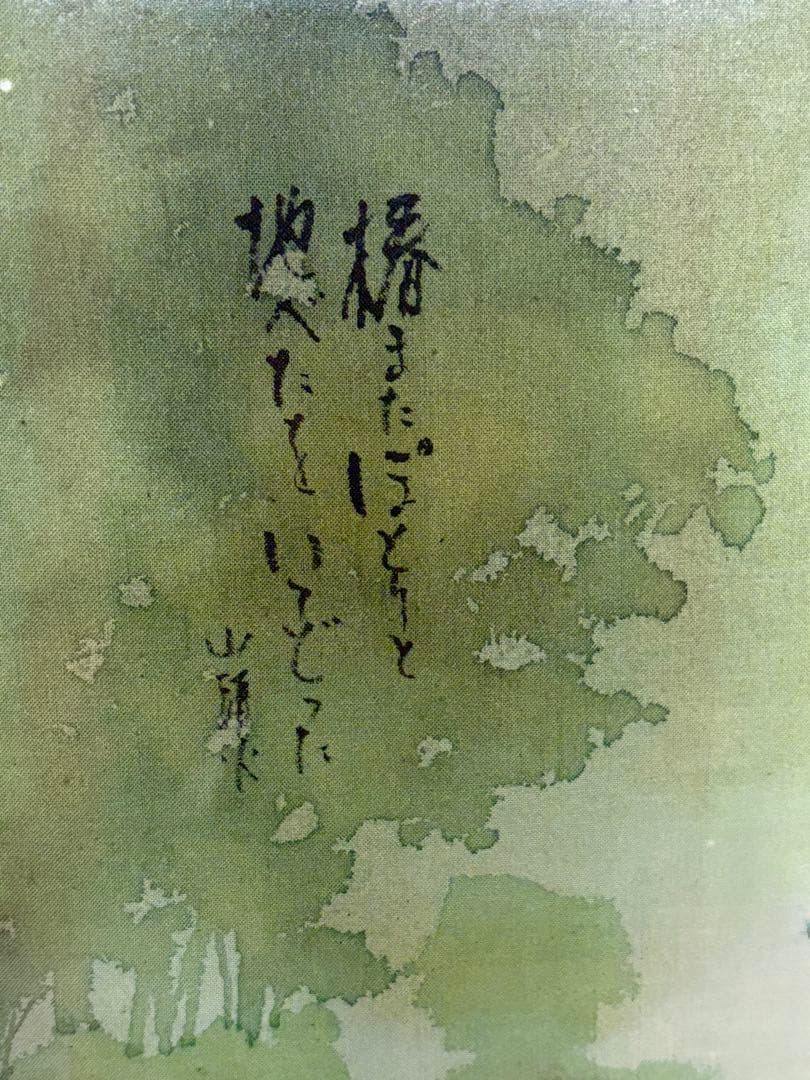 椿またぽとりと
地べたをいろどった
山頭火